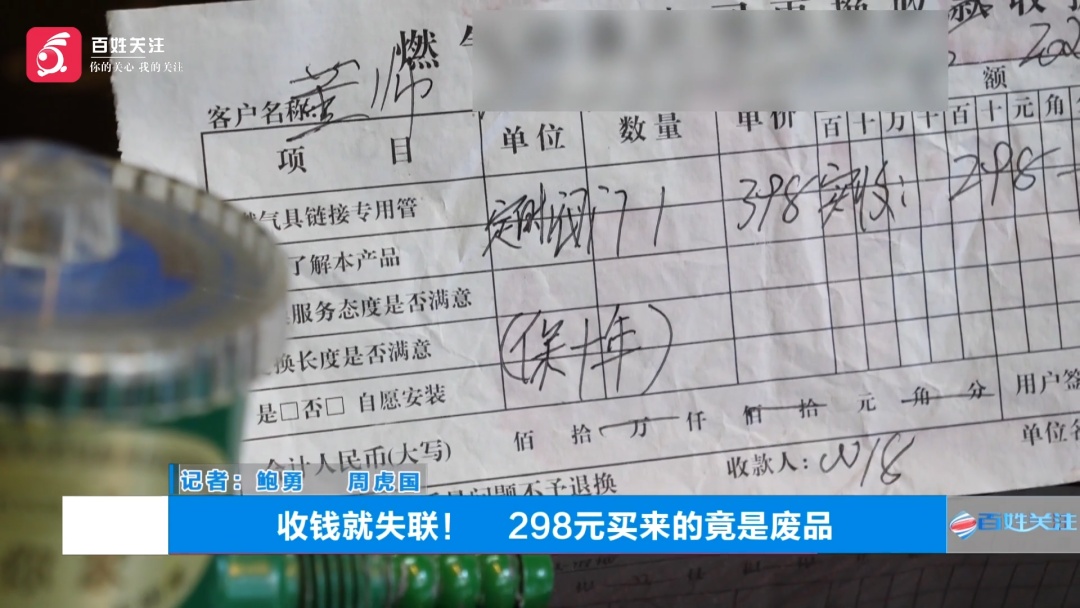 百姓关注
你的关心 我的关注
燃
202
客户名称
额
项 目 单位 数量 单价 百 十 万 千 百 十 元 角
气具链接专用管 定时阀门 1 398 实收: 298
了解本产品
服务态度是否满意
换长度是否满意 (保十年)
是□否□ 自愿安装 用户签
合计人民币(大写) 佰 拾 万 仟 佰 拾 元 角 分
收款人: 018 单位名
问题不予退换
记者: 鲍勇 周虎国
收钱就失联! 298元买来的竟是废品
百姓关注